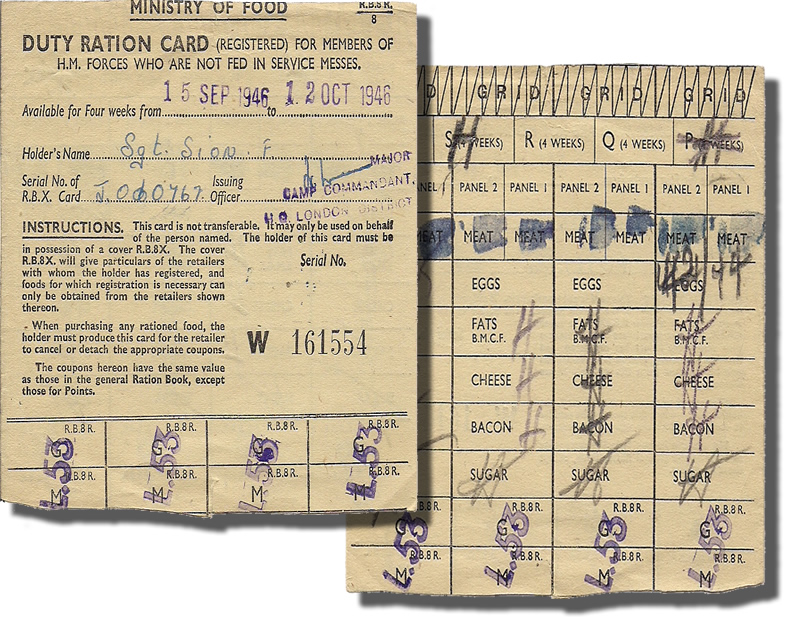 MINISTRY OF FOOD
R.B.8 R.
8
DUTY RATION CARD (REGISTERED) FOR MEMBERS OF
H.M. FORCES WHO ARE NOT FED IN SERVICE MESSES.
Available for Four weeks from 15 SEP 1946 to 12 OCT 1946
Holder's Name Sgt. Sion. F.
MAJOR
Serial No. of Issuing
R.B.X. Card J.000767 Officer
CAMP COMMANDANT,
H.Q. LONDON DISTRICT
INSTRUCTIONS. This card is not transferable. It may only be used on behalf
of the person named. The holder of this card must be
in possession of a cover R.B.8X. The cover
R.B.8X. will give particulars of the retailers
with whom the holder has registered, and
foods for which registration is necessary can
only be obtained from the retailers shown
thereon.
Serial No.
W 161554
When purchasing any rationed food, the
holder must produce this card for the retailer
to cancel or detach the appropriate coupons.
The coupons hereon have the same value
as those in the general Ration Book, except
those for Points.
R.B.8 R. R.B.8 R. R.B.8 R. R.B.8 R.
G G G G
L.53 L.53 L.53 L.53
R.B.8 R. R.B.8 R. R.B.8 R. R.B.8 R.
M M M M
D GRID GRID GRID
S (4 WEEKS) R (4 WEEKS) Q (4 WEEKS) P (4 WEEKS)
PANEL 1 PANEL 2 PANEL 1 PANEL 2 PANEL 1 PANEL 2 PANEL 1
MEAT MEAT MEAT MEAT MEAT MEAT MEAT
EGGS EGGS EGGS
FATS FATS FATS
B.M.C.F. B.M.C.F. B.M.C.F.
CHEESE CHEESE CHEESE
BACON BACON BACON
SUGAR SUGAR SUGAR
R.B.8 R. R.B.8 R. R.B.8 R. R.B.8 R.
G G G G
L.53 L.53 L.53 L.53
R.B.8 R. R.B.8 R. R.B.8 R. R.B.8 R.
M M M M